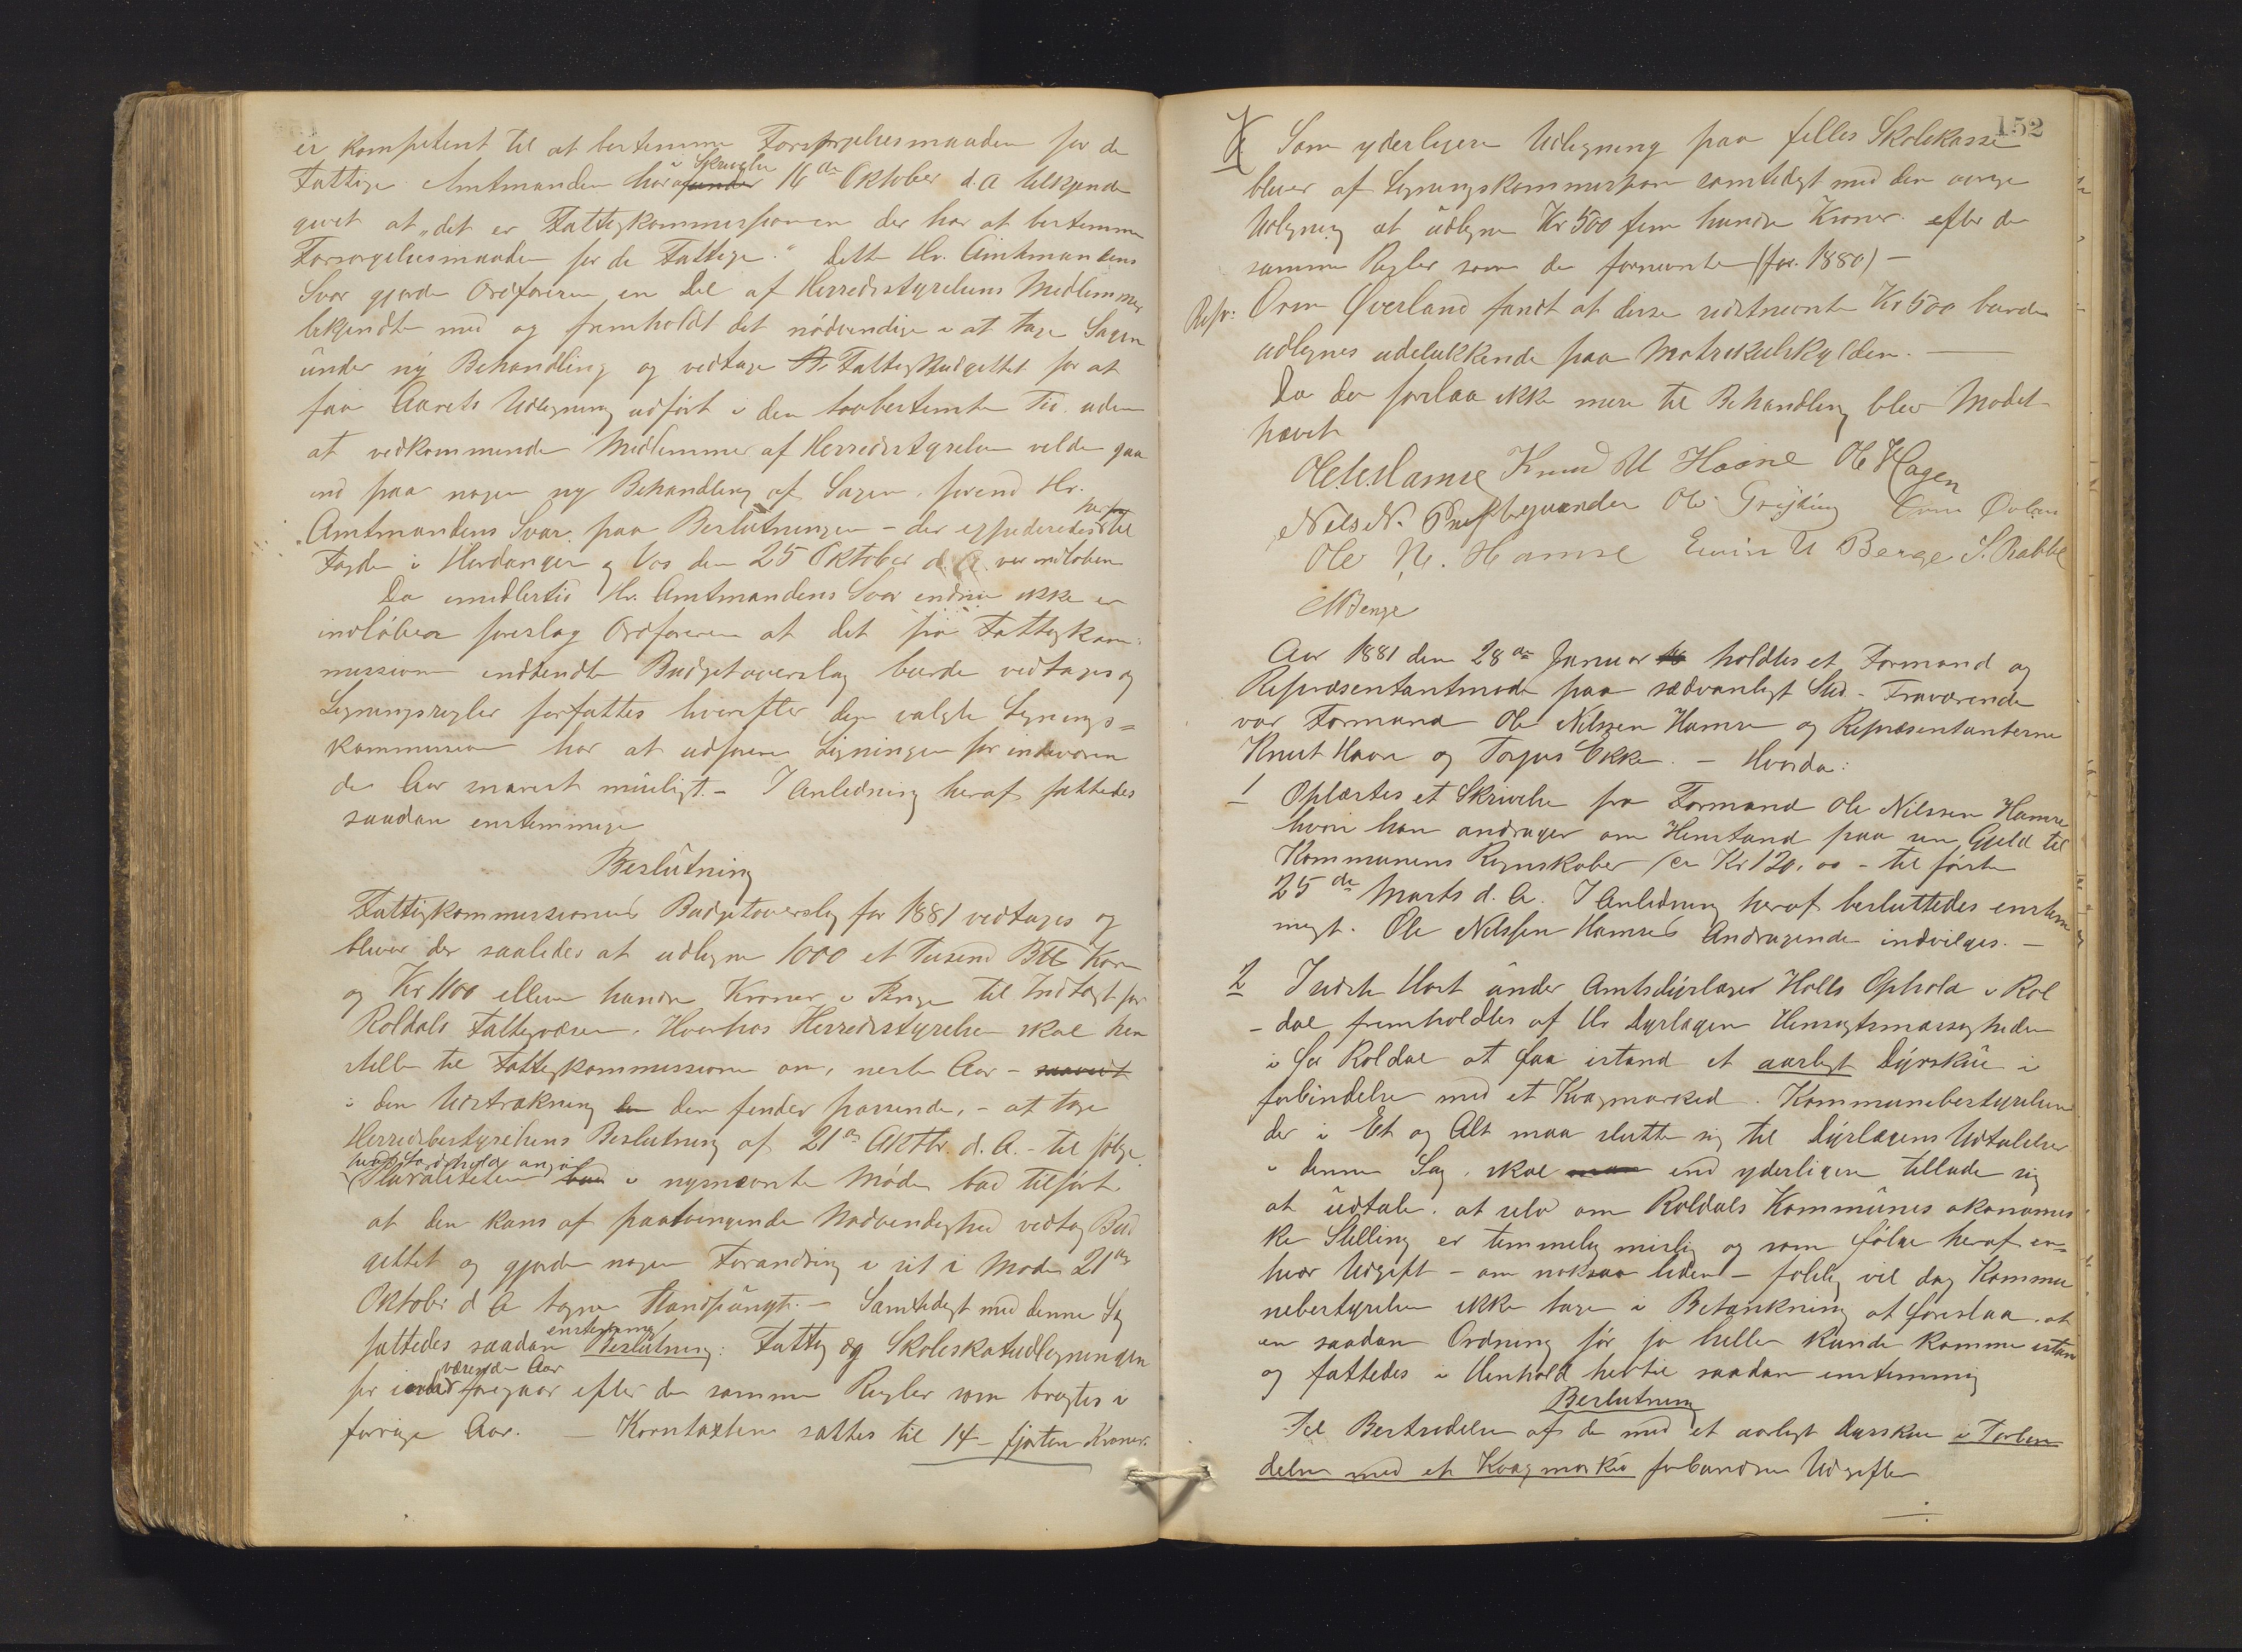 er kompetent til at bestemme Forsørgelsesmaaden for de
Fattige. Amtmanden har i Skrivelse af 16de Oktober d. A. tilkjende
givet at „det er Fattigkommissionen der har at bestemme
Forsørgelsesmaaden for de Fattige." Dette Hr. Amtmandens
Svar gjorde Ordføreren en Del af Herredsstyrelsens Medlemmer
bekjendte med og fremholdt det nödvendige i at tage Sagen
under ny Behandling og vedtage Fattigbudgettet for at
faa Aarets Udligning udfört i den lovbestemte Tid. uden
at vedkommende Medlemmer af Herredsstyrelsen vilde gaa
ind paa nogen ny Behandling af Sagen, førend Hr.
Amtmandens Svar paa Beslutningen – der expederedes til
Fogden i Hardanger og Vos den 25 Oktober d. A. var indløben
Da imidlertid Hr. Amtmandens Svar endnu ikke er
indløben foreslog Ordføreren at det fra Fattigkom-
missionen indsendte Budgetoverslag burde vedtages og
Ligningsregler forfattes hvorefter den valgte Lignings=
kommission har at udføre Ligningen for indeværen
de Aar snarest muligt. – I Anledning heraf fattedes
saadan enstemmige
Beslutning
Fattigkommissionens Budgetoverslag for 1881 vedtages og
bliver der saaledes at udligne 1000 et tusend Btl Korn
og Kr 1100 elleve hundre Kroner i Penge til Indtægt for
Roldals Fattigvæsen. Hvorhos Herredsstyrelsen skal hen
stille til Fattigkommissionen om, neste Aar –
i den Udstrækning den finder passende, – at tage
Herredsbestyrelsens Beslutning af 21de Oktbr. d. A. – til følge
Pluraliteten i nysnævnte Møde bad tilført
at den kuns af paatvingende Nødvendighed vedtog Bud
gettet og gjorde nogen Forandring i sit i Møde 21de
Oktober d A tagne Standpungt. – Samtidigt med denne Sag
fattedes saadan enstemmig Beslutning: Fattig og Skoleskatudligningen
for indeværende Aar foregaar efter de samme Regler som brugtes i
forrige Aar. – Korntaxten sattes til 14 – fjorten Kroner.
152
Som yderligere Udligning paa felles Skolekasse
bliver af Ligningskommissionen samtidigt med den øvrige
Udligning at udligne Kr 500 fem hundre Kroner efter de
samme Regler som de fornevnte (for 1880) –
Repr: Orm Øverland fandt at disse sidstnevnte Kr 500 burde
udlignes udelukkende paa Matrikulskylden. –
Da der forelaa ikke mere til Behandling blev Mødet
hævet
Knud Haane Ole Hagen
Nels N. Ole
Ole N. Hamre Berge S. Rabbe
Aar 1881 den 28de Januar holdtes et Formand og
Repræsentantmøde paa sædvanligt Sted. – Fraværende
var Formand Ole Nilssen Hamre og Repræsentanterne
Knut Haave og Torgus Ekke. – Hvorda:
1 Oplæstes et Skrivelse fra Formand Ole Nilssen Hamre
hvori han andrager om Henstand paa sin Gjeld til
Kommunens Regnskaber /ca Kr 120,00 – til første
25de Marts d. A. I Anledning heraf besluttedes enstem
migt. Ole Nilssen Hamres Andragende indvilges. –
2 I sidste Høst under Amtsdyrlæge Holls Ophold i Rol
– dal fremholdtes af Hr Dyrlægen Hensigtsmæssigheden
i for Roldal at faa istand et aarligt Dyrskue i
forbindelse med et Kvægmarked. Kommunebestyrelsen
der i Et og Alt maa slutte sig til Dyrlægens Udtalelser
i denne Sag, skal end yderligere tillade sig
at udtale, at selv om Roldals Kommunes økonomis
ke Stilling er temmelig mislig og som følge heraf en=
hver Udgift – om noksaa liden – følelig vil dog Kommu
nebestyrelsen ikke tage i Betænkning at foreslaa, at
en saadan Ordning før jo heller kunde komme istan
og fattedes i Henhold hertil saadan enstemmig
Beslutning
Til Bestridelse af de med et aarligt Dyrskue i Forbin
delse med et Kvægmarked forbundne Udgifter